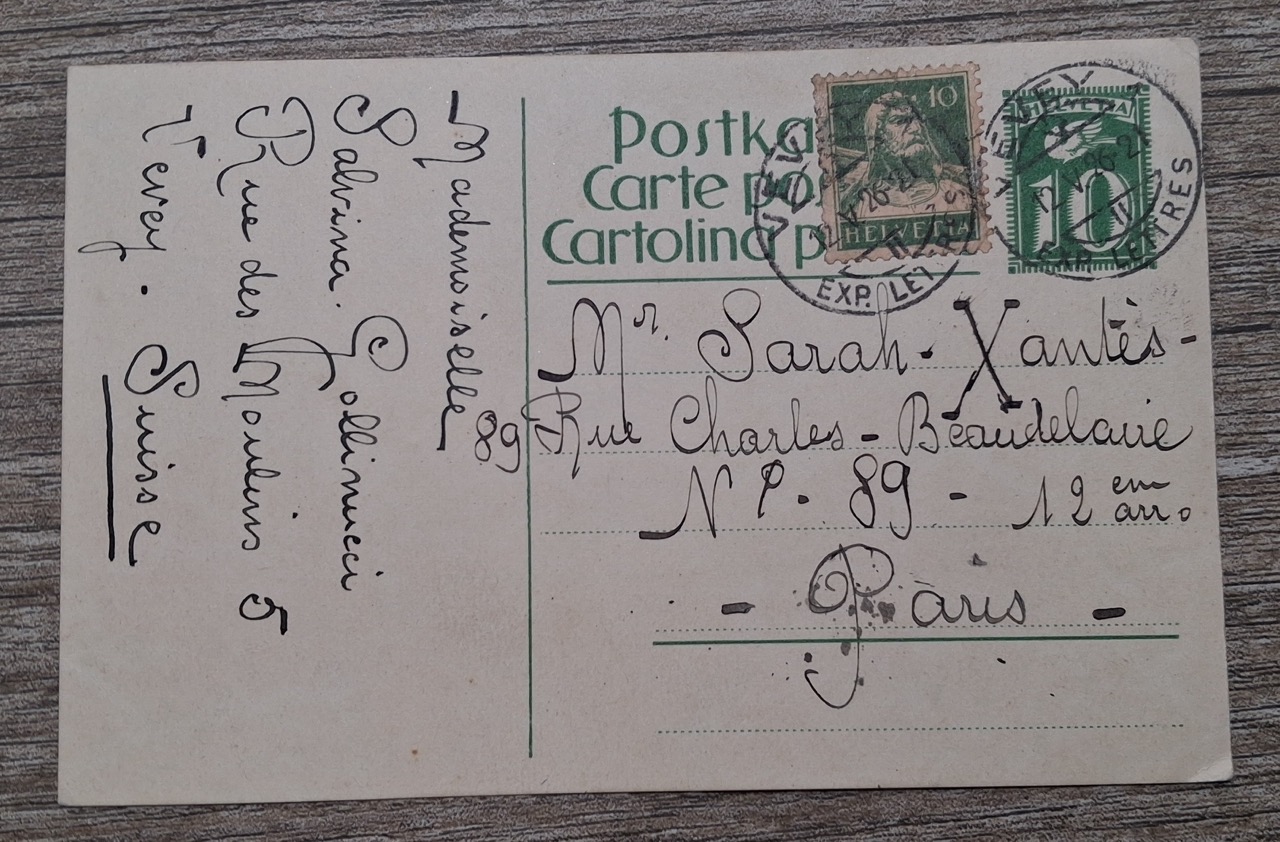 Mademoiselle
Salvina Gollinucci
Rue des Moulins 5
Vevey. Suisse
Postka
Carte pos
Cartolina p
10
HELVETIA
VEVEY
12.V.26-21
II
EXP. LETTRES
HELVETIA
10
VEVEY 1
12.V.26-21
II
EXP. LETTRES
Mr. Sarah - Xantès -
89 Rue Charles - Beaudelaire
No. 89 - 12 em arr.
- Paris -